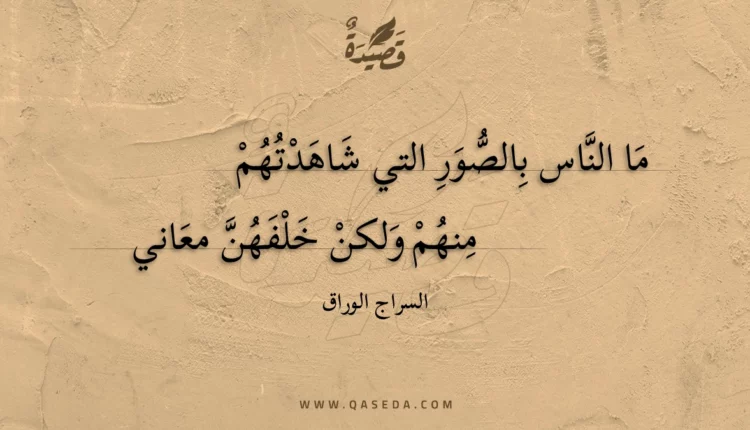 قَصِيْدَةٌ
مَا النَّاس بِالصُّوَرِ التي شَاهَدْتُهُمْ
مِنهُمْ وَلكنْ خَلْفَهُنَّ معَاني
السراج الوراق
WWW.QASEDA.COM